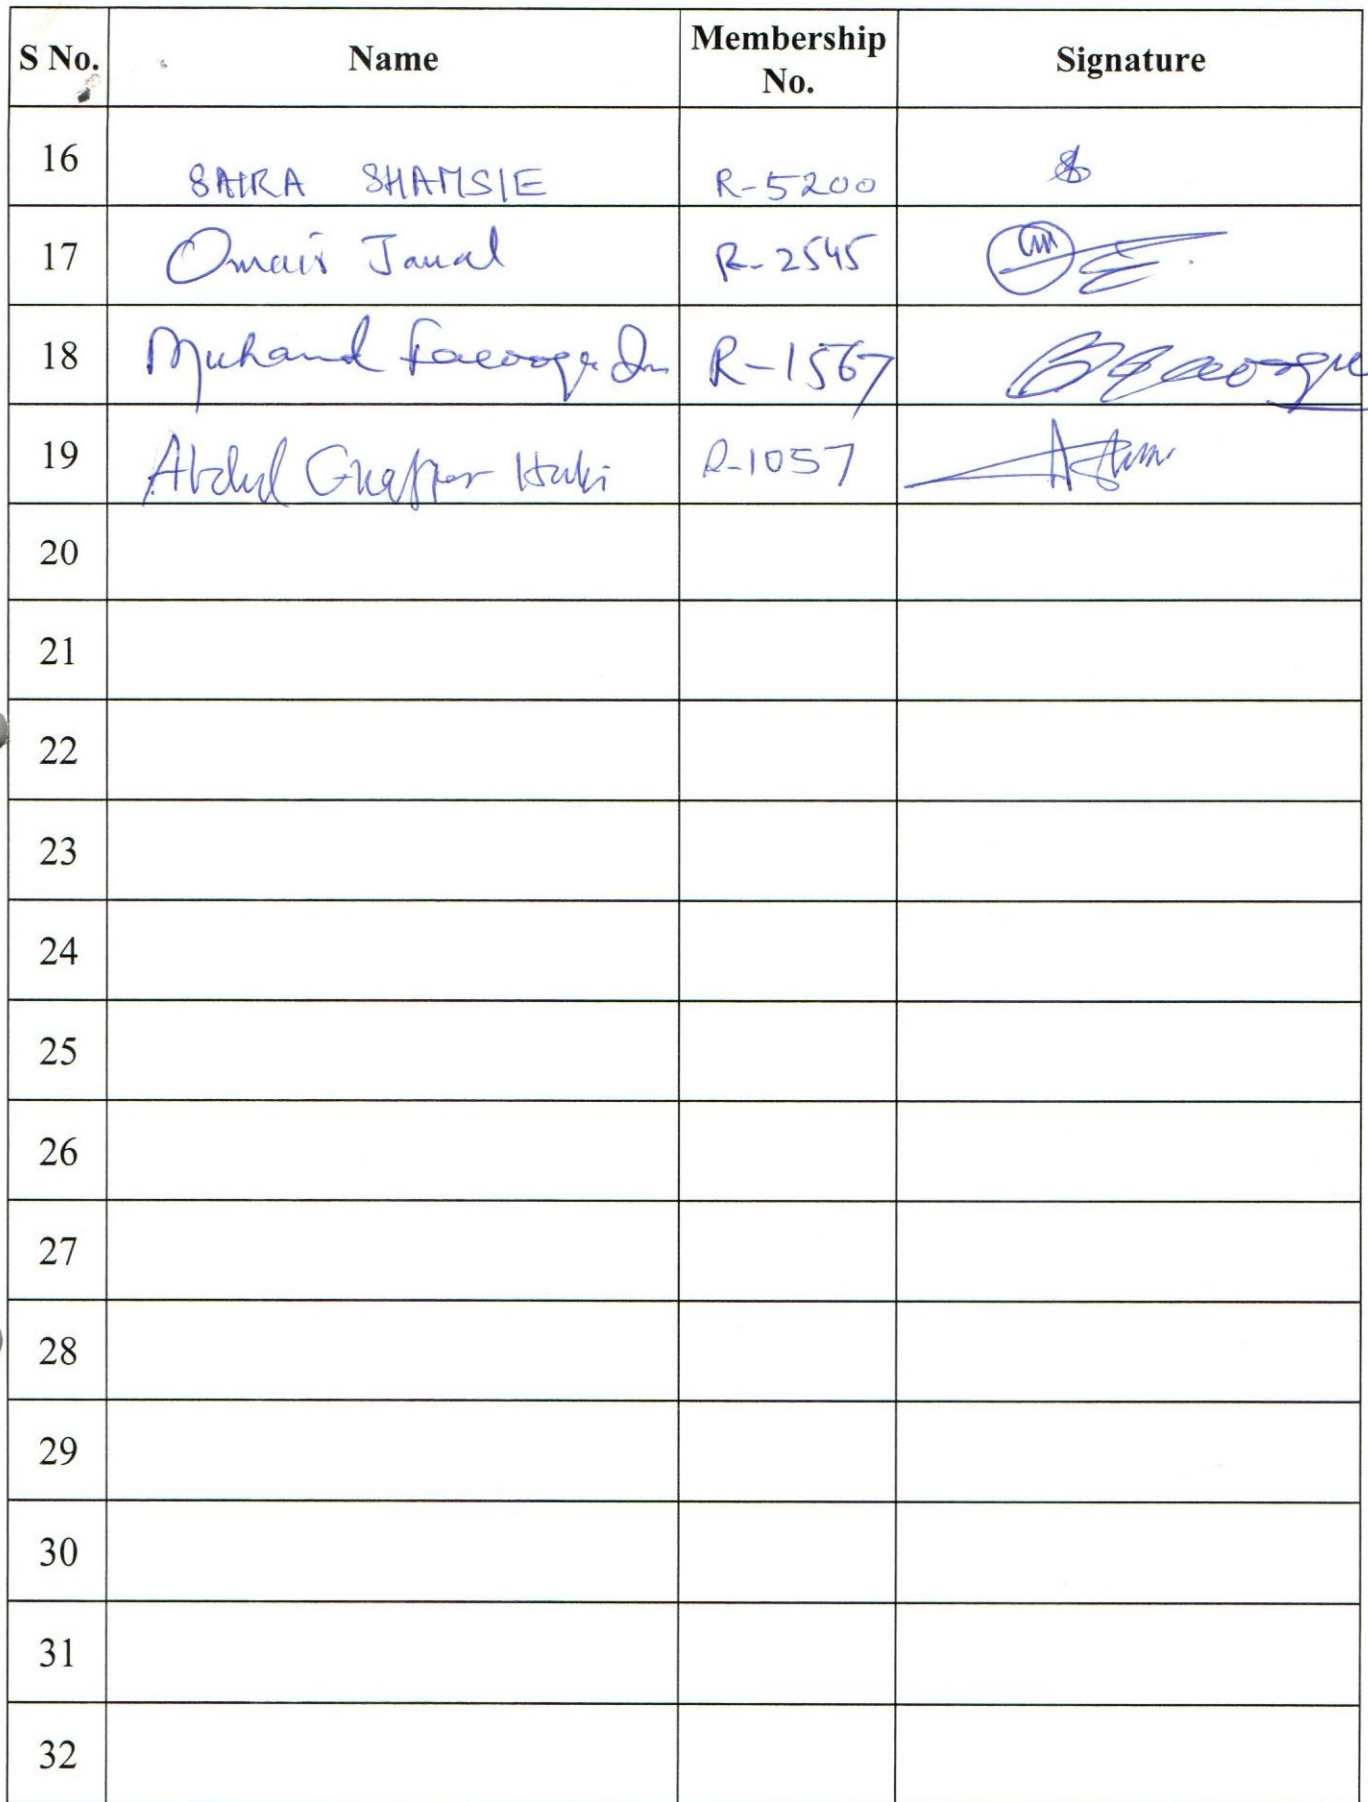 S No. Name Membership No. Signature
16 SAIRA SHAMSIE R-5200
17 Omair Jamal R-2545
18 Farooq R-1567
19 Abdul Ghaffar R-1057
20
21
22
23
24
25
26
27
28
29
30
31
32